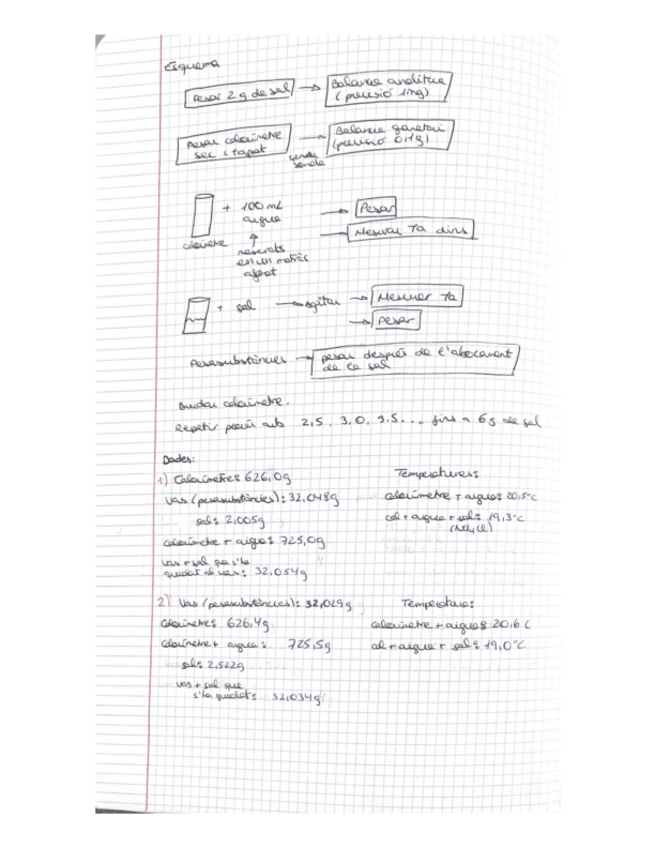 Esquema
Pesar 2 g de sal → Balança analítica
(precisió 1mg)
Pesar calorímetre → Balança granetari
sec i tapat (precisió 0,1g)
sonda
+ 100 mL → Pesar
aigua → Mesurar Ta dins
calorímetre
mesurats
en un matràs
aforat
+ sal → agitar → Mesurar Ta
→ Pesar
Pesasubstàncies → pesar després de l'abocament
de la sal
Buidar calorímetre.
Repetir procés amb 2,5. 3,0, 3,5.... fins a 6g de sal
Dades:
1) Calorímetre: 626,0g Temperatures:
Vas (pesasubstàncies): 32,048g calorímetre + aigua: 20,5°C
sal: 2,005g cal + aigua + sal: 19,3°C
(NH4Cl)
calorímetre + aigua: 725,0g
vas + sal que s'ha
quedat al vas: 32,054g
2) Vas (pesasubstàncies): 32,029g Temperatura:
Calorímetre: 626,4g calorímetre + aigua: 20,6 C
Calorímetre + aigua: 725,5g cal + aigua + sal: 19,0°C
sal: 2,522g
vas + sal que
s'ha quedat: 32,034g